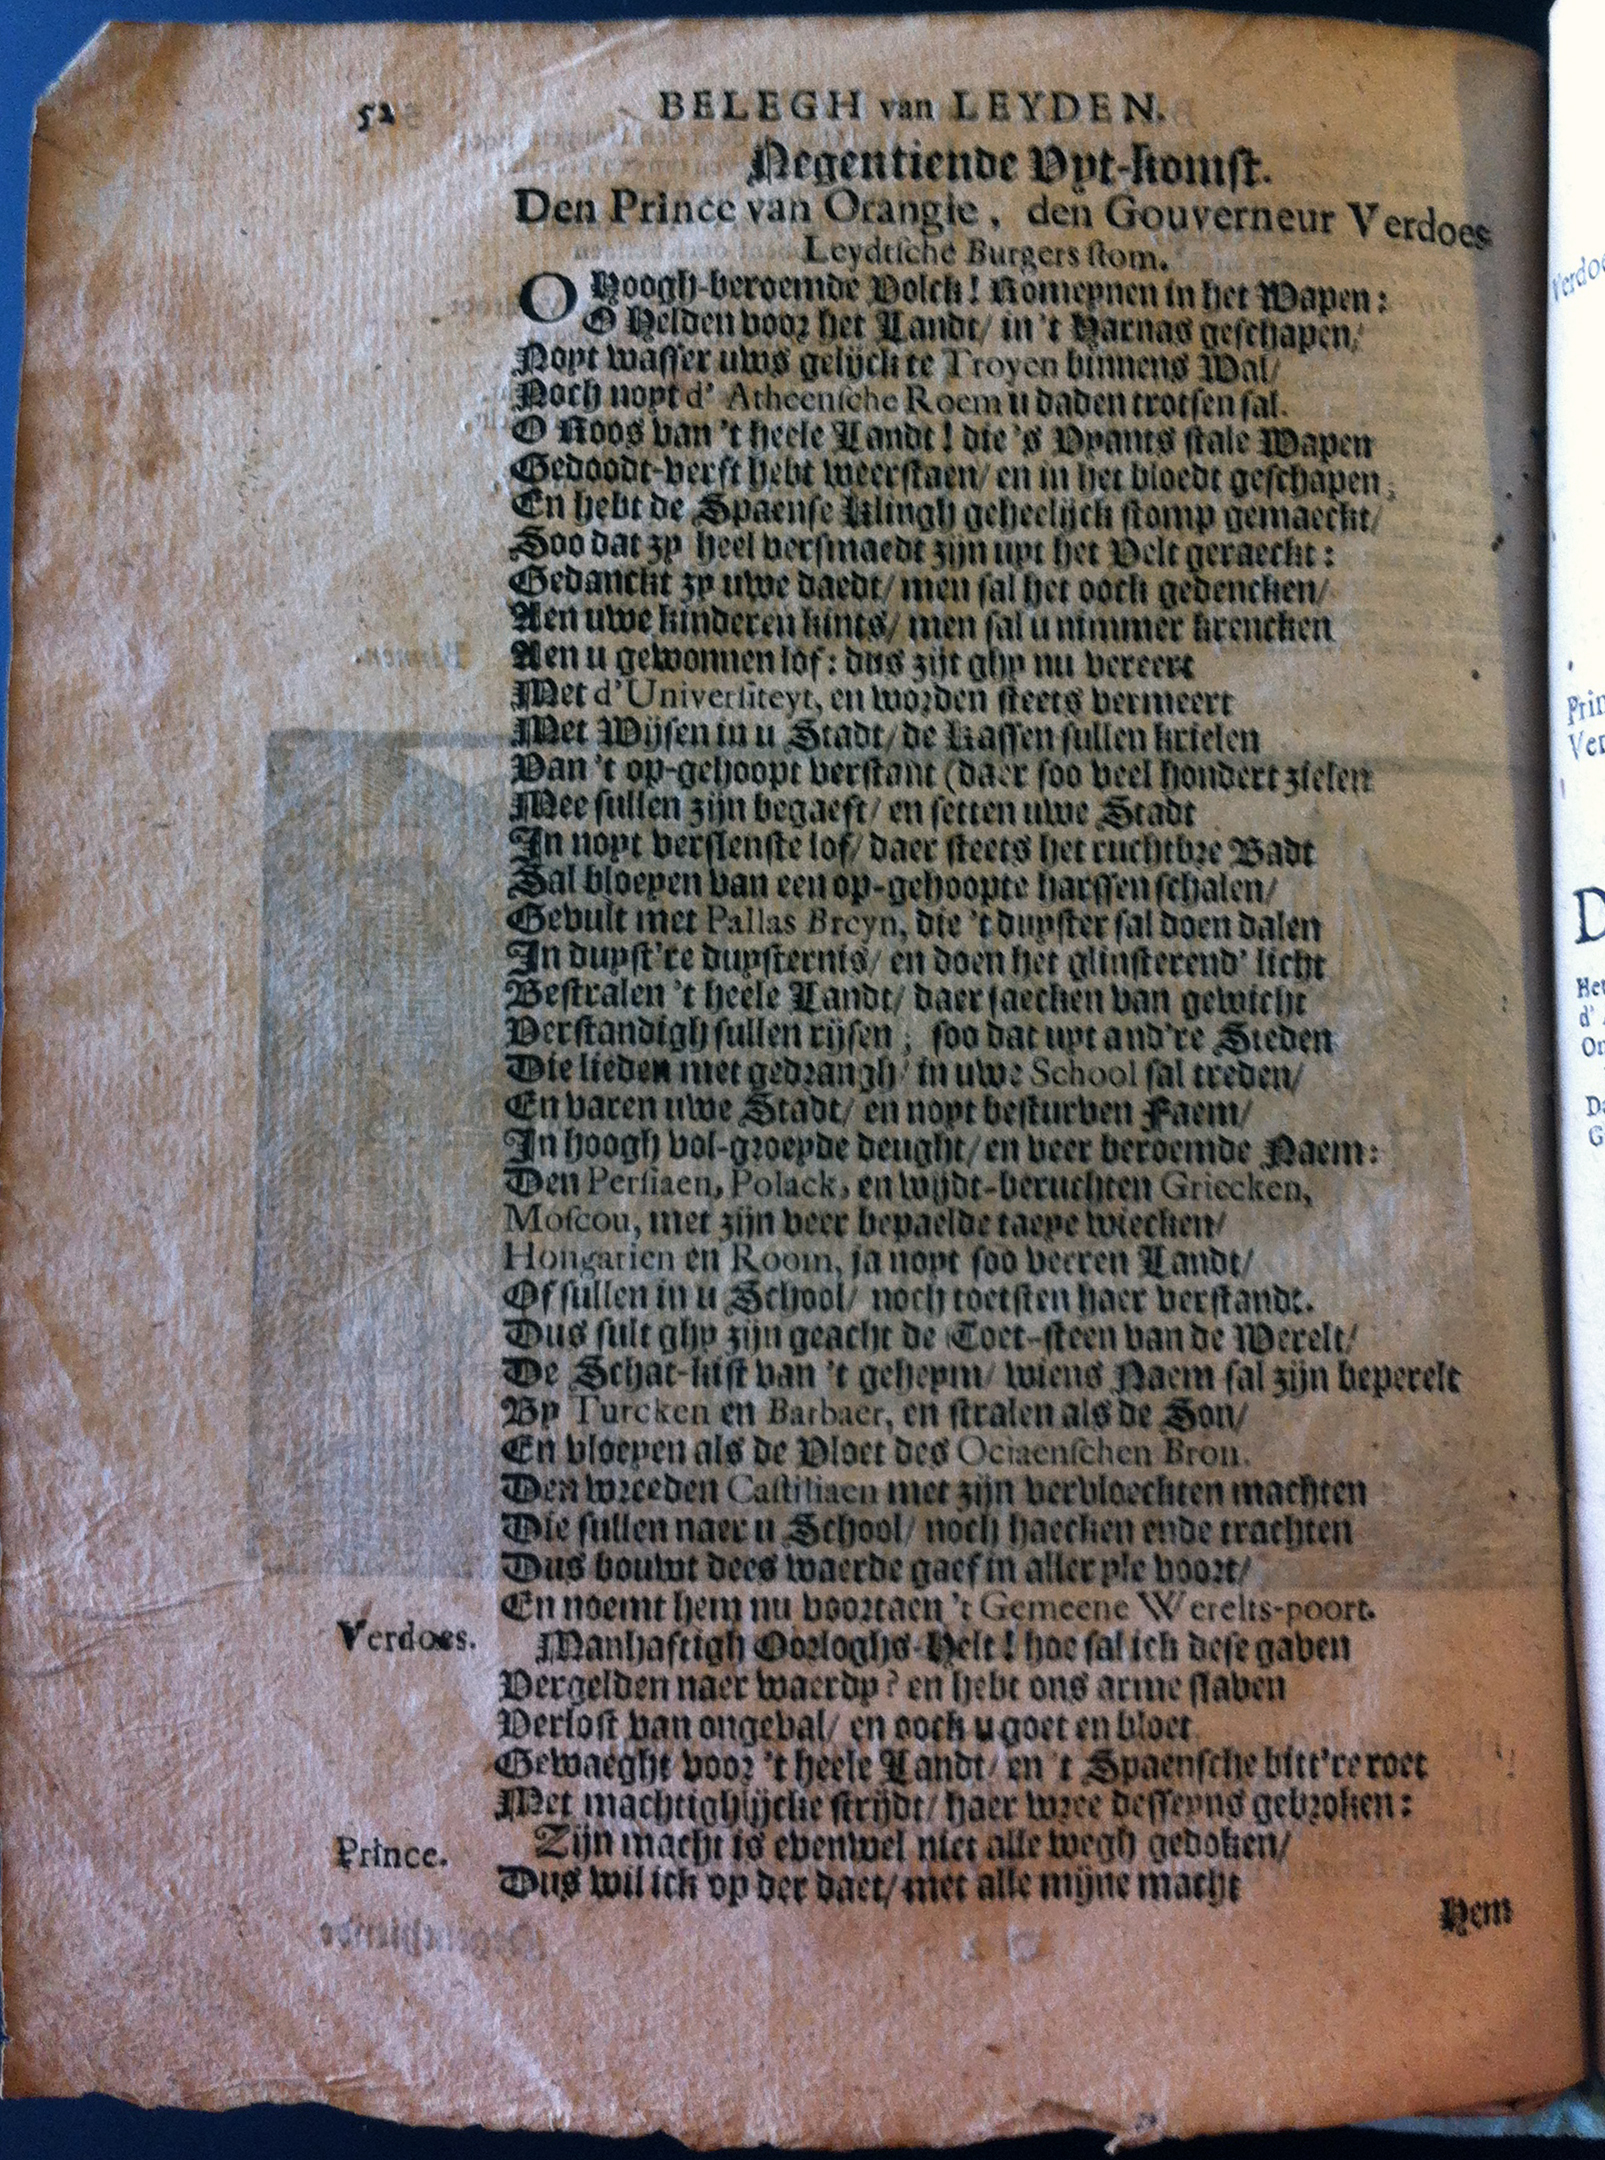 52 BELEGH van LEYDEN.
Negentiende Uyt-komst.
Den Prince van Orangie, den Gouverneur Verdoes
Leydtsche Burgers stom.
O Hoogh-beroemde Volck! Romeynen in het Wapen:
O Helden voor het Landt/ in 't Harnas geschapen/
Noyt wasser uws gelijck te Troyen binnens Wal/
Noch noyt d' Atheensche Roem u daden trotsen sal.
O Roos van 't heele Landt! die 's Vyants stale Wapen
Gedoodt-verft hebt weerstaen/ en in het bloedt geschapen,
En hebt de Spaense Klingh geheelijck stomp gemaeckt/
Soo dat zy heel versmaedt zijn uyt het Velt geraeckt:
Gedanckt zy uwe daedt/ men sal het oock gedencken/
Aen uwe kinderen kints/ men sal u nimmer krencken
Aen u gewonnen lof: dus zijt ghy nu vereert
Met d'Universiteyt, en worden steets vermeert
Met Wijsen in u Stadt/ de Kassen sullen krielen
Van 't op-gehoopt verstant (daer soo veel hondert zielen
Mee sullen zijn begaeft/ en setten uwe Stadt
In noyt verslenste lof/ daer steets het ruchtbre Badt
Sal bloeyen van een op-gehoopte harssen schalen/
Gevult met Pallas Breyn, die 't duyster sal doen dalen
In duyst're duysternis/ en doen het glinsterend' licht
Bestralen 't heele Landt/ daer saecken van gewicht
Verstandigh sullen rijsen; soo dat uyt and're Steden
Die lieden met gedrangh/ in uwe School sal treden/
En varen uwe Stadt/ en noyt besturven Faem/
In hoogh vol-groeyde deught/ en veer beroemde Naem:
Den Persiaen, Polack, en wijdt-beruchten Griecken,
Moscou, met zijn veer bepaelde taeye wiecken/
Hongarien en Room, ja noyt soo verren Landt/
Of sullen in u School/ noch toetsten haer verstandt.
Dus sult ghy zijn geacht de Toet-steen van de Werelt/
De Schat-kist van 't geheym/ wiens Naem sal zijn beperelt
By Turcken en Barbaer, en stralen als de Son/
En vloeyen als de Vloet des Ociaenschen Bron.
Den wreeden Castiliaen met zijn vervloeckten machten
Die sullen naer u School/ noch haecken ende trachten
Dus bouwt dees waerde gaef in aller yle voort/
En noemt hem nu voortaen 't Gemeene Werelts-poort.
Verdoes. Manhaftigh Oorloghs-Helt! hoe sal ick dese gaven
Vergelden naer waerdy? en hebt ons arme slaven
Verlost van ongeval/ en oock u goet en bloet
Gewaeght voor 't heele Landt/ en 't Spaensche bitt're roet
Met machtighlijcke strijdt/ haer wree desseyns gebroken:
Prince. Zijn macht is evenwel niet alle wegh gedoken/
Dus wil ick op der daet/ met alle mijne macht
Hem